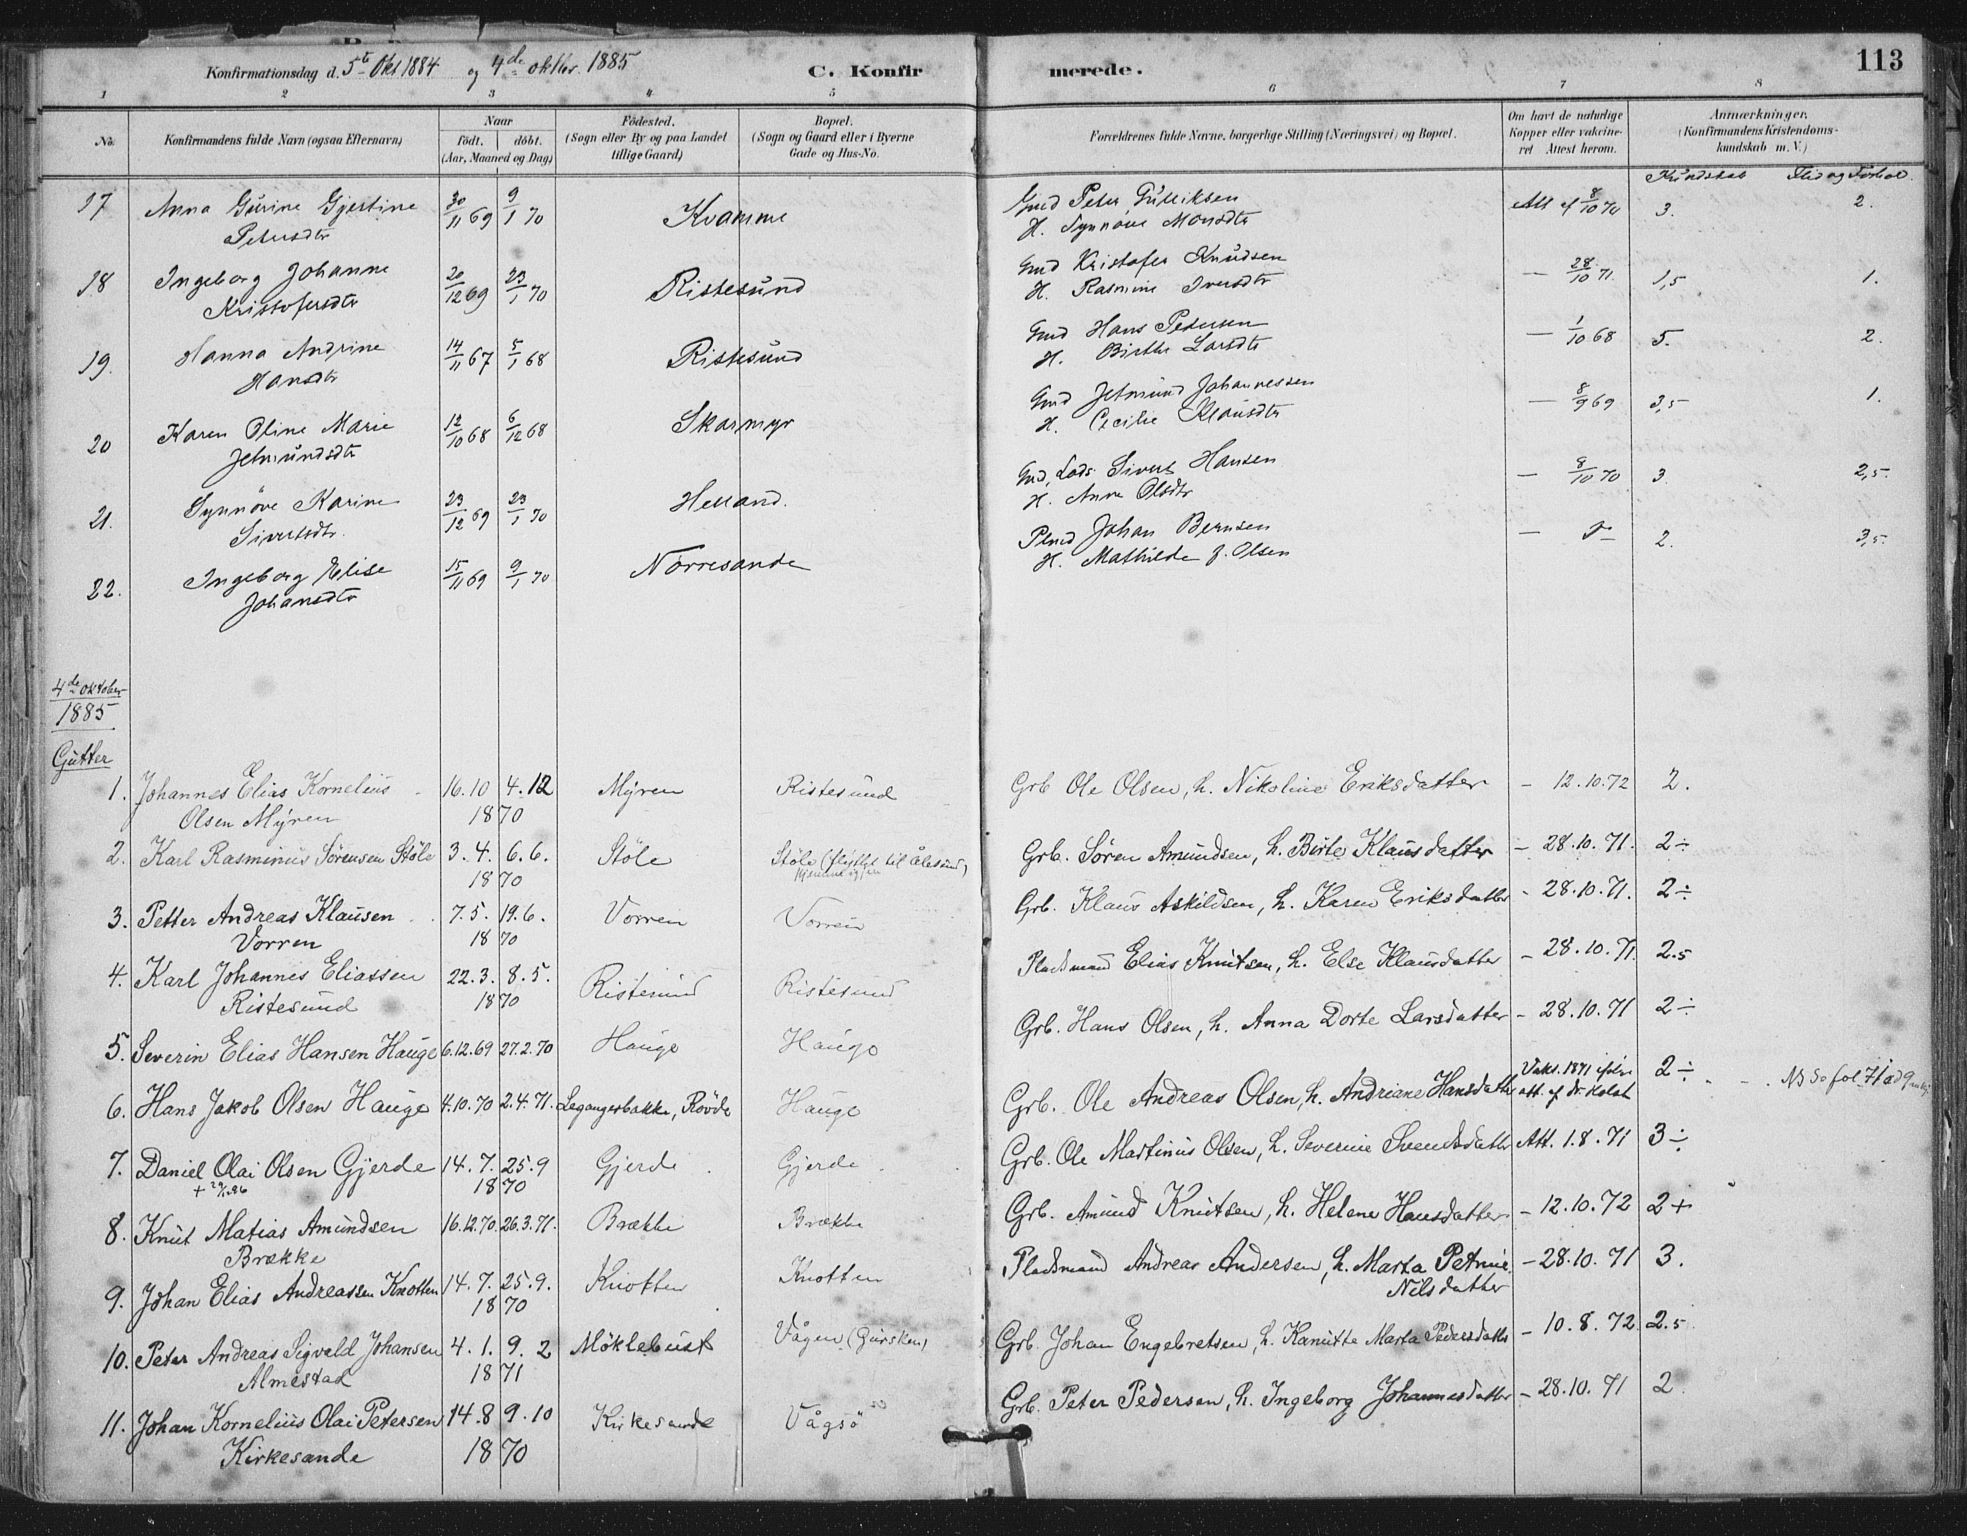 113
Konfirmationsdag d. 5te Okt 1884 og 4de oktbr. 1885 C. Konfirmerede.
1 2 3 4 5 6 7 8
No. Konfirmandens fulde Navn (ogsaa Efternavn) Naar født. døbt. (Aar, Maaned og Dag) Fødested. (Sogn eller By og paa Landet tillige Gaard) Bopæl. (Sogn og Gaard eller i Byerne Gade og Hus-No. Forældrenes fulde Navne, borgerlige Stilling (Næringsvei) og Bopæl. Om havt de naturlige Kopper eller vakcineret Attest herom. Anmærkninger. (Konfirmandens Kristendomskundskab m. V.)
Kundskab Flid og Forhol.
17 Anna Gurine Gjertine 30/11 69 9/1 70 Kvamme Gmd Peter Gulliksen Att af 8/10 70 3. 2.
Petersdtr H. Synnøve Monsdtr
18 Ingeborg Johanne 20/12 69 23/1 70 Ristesund Gmd Kristofer Knudsen — 28/10 71 1,5 1.
Kristofersdtr H. Rasmine Iversdtr
19. Hanna Andrine 14/11 67 5/1 68 Ristesund Gmd Hans Pedersen — 1/10 68 5. 2.
Hansdtr H. Birthe Larsdtr
20 Karen Oline Marie 12/10 68 6/12 68 Skarmyr Gmd Jetmund Johannessen — 8/9 69 3,5 1.
Jetmundsdtr H. Cecilie Klausdtr
21. Synnøve Karine 23/12 69 23/1 70 Helland. Gmd, Lods Sivert Hansen — 8/10 70 3. 2,5.
Sivertsdtr. H. Anne Olsdtr
22. Ingeborg Elise 15/11 69 9/1 70 Nørresande Plmd Johan Bernsen — 2. 3,5.
Johansdtr H. Mathilde J. Olsen
4de oktober
1885
Gutter
1. Johannes Elias Kornelius 16.10 4.12 Myren Ristesund Grb Ole Olsen, h. Nikoline Eriksdatter – 12.10.72 2.
Olsen Myren 1870
2. Karl Rasminus Sørensen Støle 3.4. 6.6. Støle Støle (flyttet til Ålesund) Grb. Søren Amundsen, h. Birte Klausdatter – 28.10.71. 2÷
1870
3. Petter Andreas Klausen 7.5. 19.6. Vorren Vorren Grb. Klaus Askildsen, h. Karen Eriksdatter – 28.10.71. 2÷
Vorren 1870
4. Karl Johannes Eliassen 22.3. 8.5. Ristesund Ristesund Pladsmand Elias Knutsen, h. Else Klausdatter – 28.10.71. 2.5
Ristesund 1870
5. Severin Elias Hansen Hauge 6.12.69 27.2.70 Hauge Hauge Grb. Hans Olsen, h. Anna Dorte Larsdatter – 28.10.71 2÷
6. Hans Jakob Olsen Hauge 4.10.70 2.4.71. Legangerbakke, Røvde Hauge Grb. Ole Andreas Olsen, h. Andriane Hansdatter Vaks. 1871 ifølge att. af dr. Holst 2÷
7. Daniel Olai Olsen Gjerde 14.7. 25.9 Gjerde Gjerde Grb. Ole Martinus Olsen, h. Severine Svendsdatter Att. 1.8.71 3÷
1870
8. Knut Matias Amundsen 16.12.70. 26.3.71. Brække Brække Grb. Amund Knutsen, h. Helene Hansdatter – 12.10.72 2+
Brække
9. Johan Elias Andreassen Knotten 14.7. 25.9. Knotten Knotten Pladsmand Andreas Andersen, h. Marta Petrine – 28.10.71 3.
1870 Nilsdatter
10. Peter Andreas Sigvald Johansen 4.1. 9.2 Møklebust Vågen (Gursken) Grb. Johan Engebretsen, h. Kanutte Marta Pedersdatter – 10.8.72 2.5
Almestad 1871
11. Johan Kornelius Olai Petersen 14.8 9.10 Kirkesande Vågsö Grb. Peter Pedersen, h. Ingeborg Johannesdatter – 28.10.71 2
Kirkesande 1870